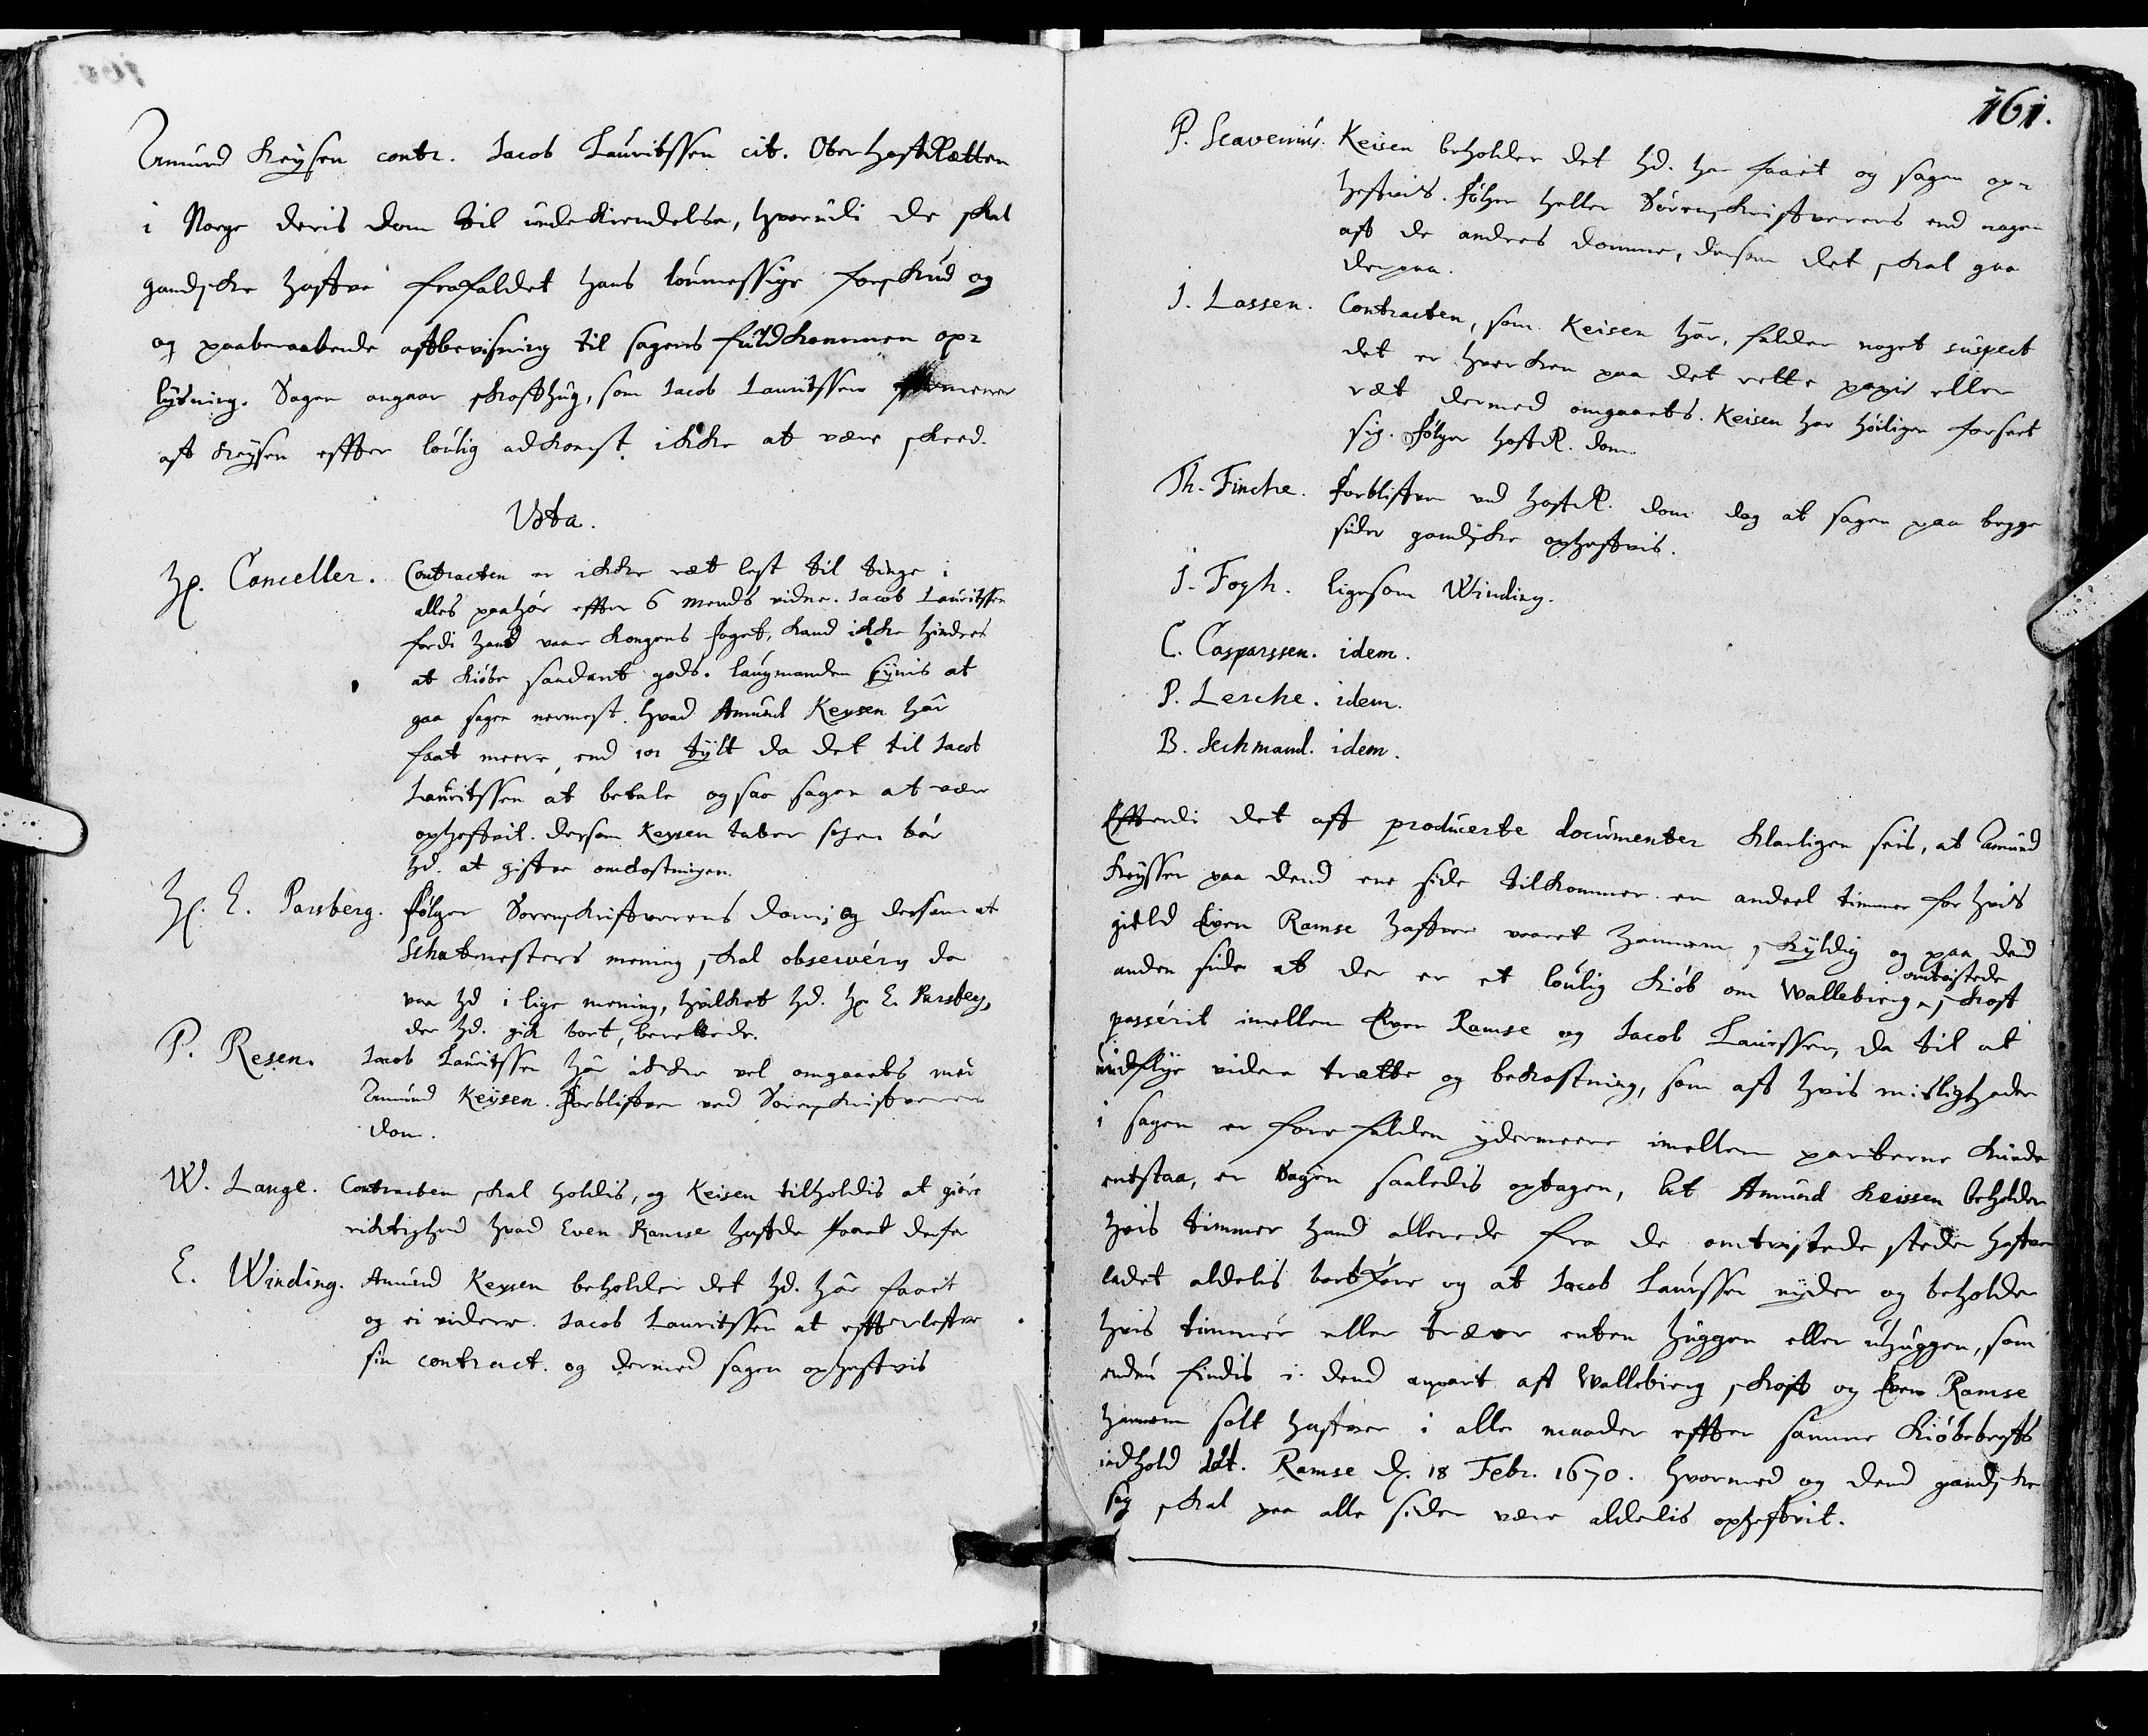 Amund Keysen contr. Jacob Lauritssen cit. OberhoftRetten
i Norge deris dom til underkiendelse, hvorudi de skal
gandske hafve frafaldet hans loumessige forskud og
og paaberaabende afbevisning til sagens fuldkommen op-
lysning. Sagen angaar skofhug, som Jacob Lauritssen formener
af Keysen effter loulig adkomst ikke at være skeed.
Vota.
Hr. Canceller. Contracten er ikke ret lest til tinge i
alles paahør effter 6 mends vidne. Jacob Lauritssen
fordi hand vaar Kongens foget, kand ikke hindres
at kiøbe saadant gods. laugmanden synis at
gaa sagen nermest. hvad Amund Keysen har
faat meere end 101 tylt da det til Jacob
Lauritssen at betale og saa sagen at være
ophefvit. dersom Keysen taber sagen bør
hd. at gifve omkostningen.
Hr. E. Parsberg. Følger Sorenskrifverens dom, og dersom at
Schatmesters mening skal observéris da
var hd i lige mening, hvilket hd. Hr E. Parsberg,
der hd. gik bort, berettede.
P. Resen. Jacob Lauritssen har ikke vel omgaaets med
Amund Keysen. Forblifver ved Sorenskrifverens
dom.
W. Lange. Contracten skal holdis, og Keisen tilholdis at giøre
richtighed hvad Even Ramse hafde faaet derfor
E. Winding. Amund Keysen beholder det hd. har faait
og ei videre. Jacob Lauritssen at effterlefve
sin contract. og dermed sagen ophefvis
161.
P. Scavenius. Keisen beholder det hd. har faait og sagen op-
hefvis. følger heller Sorenskrifverens end nogen
af de andres domme, dersom det skal gaa
derpaa.
J. Lassen. Contracten, som Keisen har, falder noget suspect
det er hverken paa det rette papir eller
ret dermed omgaaets. Keisen har høiligen forseet
sig. Følger hofR. dom.
Th. Fincke. Forblifver ved hofR. dom dog at sagen paa begge
sider gandske ophefvis.
J. Fogh. ligesom Winding.
C. Casparssen. idem.
P. Lerche. idem.
B. Sechmand. idem.
Efterdi det af producerte documenter klarligen seis, at Amund
Keysser paa dend ene side tilkommer en andeel timmer for hvis
gield Even Ramse hafver vaaret hannem skyldig og paa dend
anden side at der er et loulig kiøb om Wallebierg omtvistede skof
passérit imellem Even Ramse og Jacob Laurssen, da til at
undflye videre trætte og bekostning, som af hvis misligheder
i sagen er fore falden ydermeere imellem parterne kunde
entstaa, er sagen saaledis optagen, at Amund Keissen beholder
hvis timmer hand allerede fra de omtvistede steder hafver
ladet aldelis bortføre og at Jacob Laurssen nyder og beholder
hvis timmer eller træer enten huggen eller uhuggen, som
endnu findis i dend anpart af Wallebierg skof og Even Ramse
hannem solt hafver i alle maader effter samme kiøbebrefs
indhold ddt. Ramse d. 18 Febr. 1670. hvormed og dend gandske
sag skal paa alle sider være aldelis ophefvit.